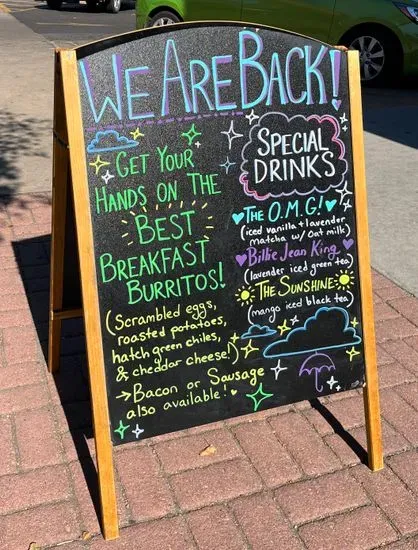 WE ARE BACK!
GET YOUR
HANDS ON THE
BEST
BREAKFAST
BURRITOS!
(Scrambled eggs,
roasted potatoes,
hatch green chiles,
& cheddar cheese!)
→Bacon or Sausage
also available!
SPECIAL
DRINKS
THE O.M.G!
(iced vanilla + lavender
matcha w/ Oat milk)
Billie Jean King
(lavender iced green tea)
THE SUNSHINE
(mango iced black tea)